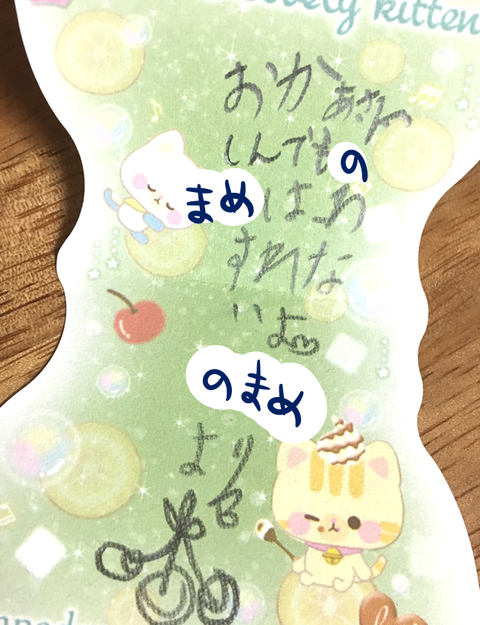 ovely kitten
おかあさん
しんでもの
まめはわ
すれな
いよ♡
のまめ
より